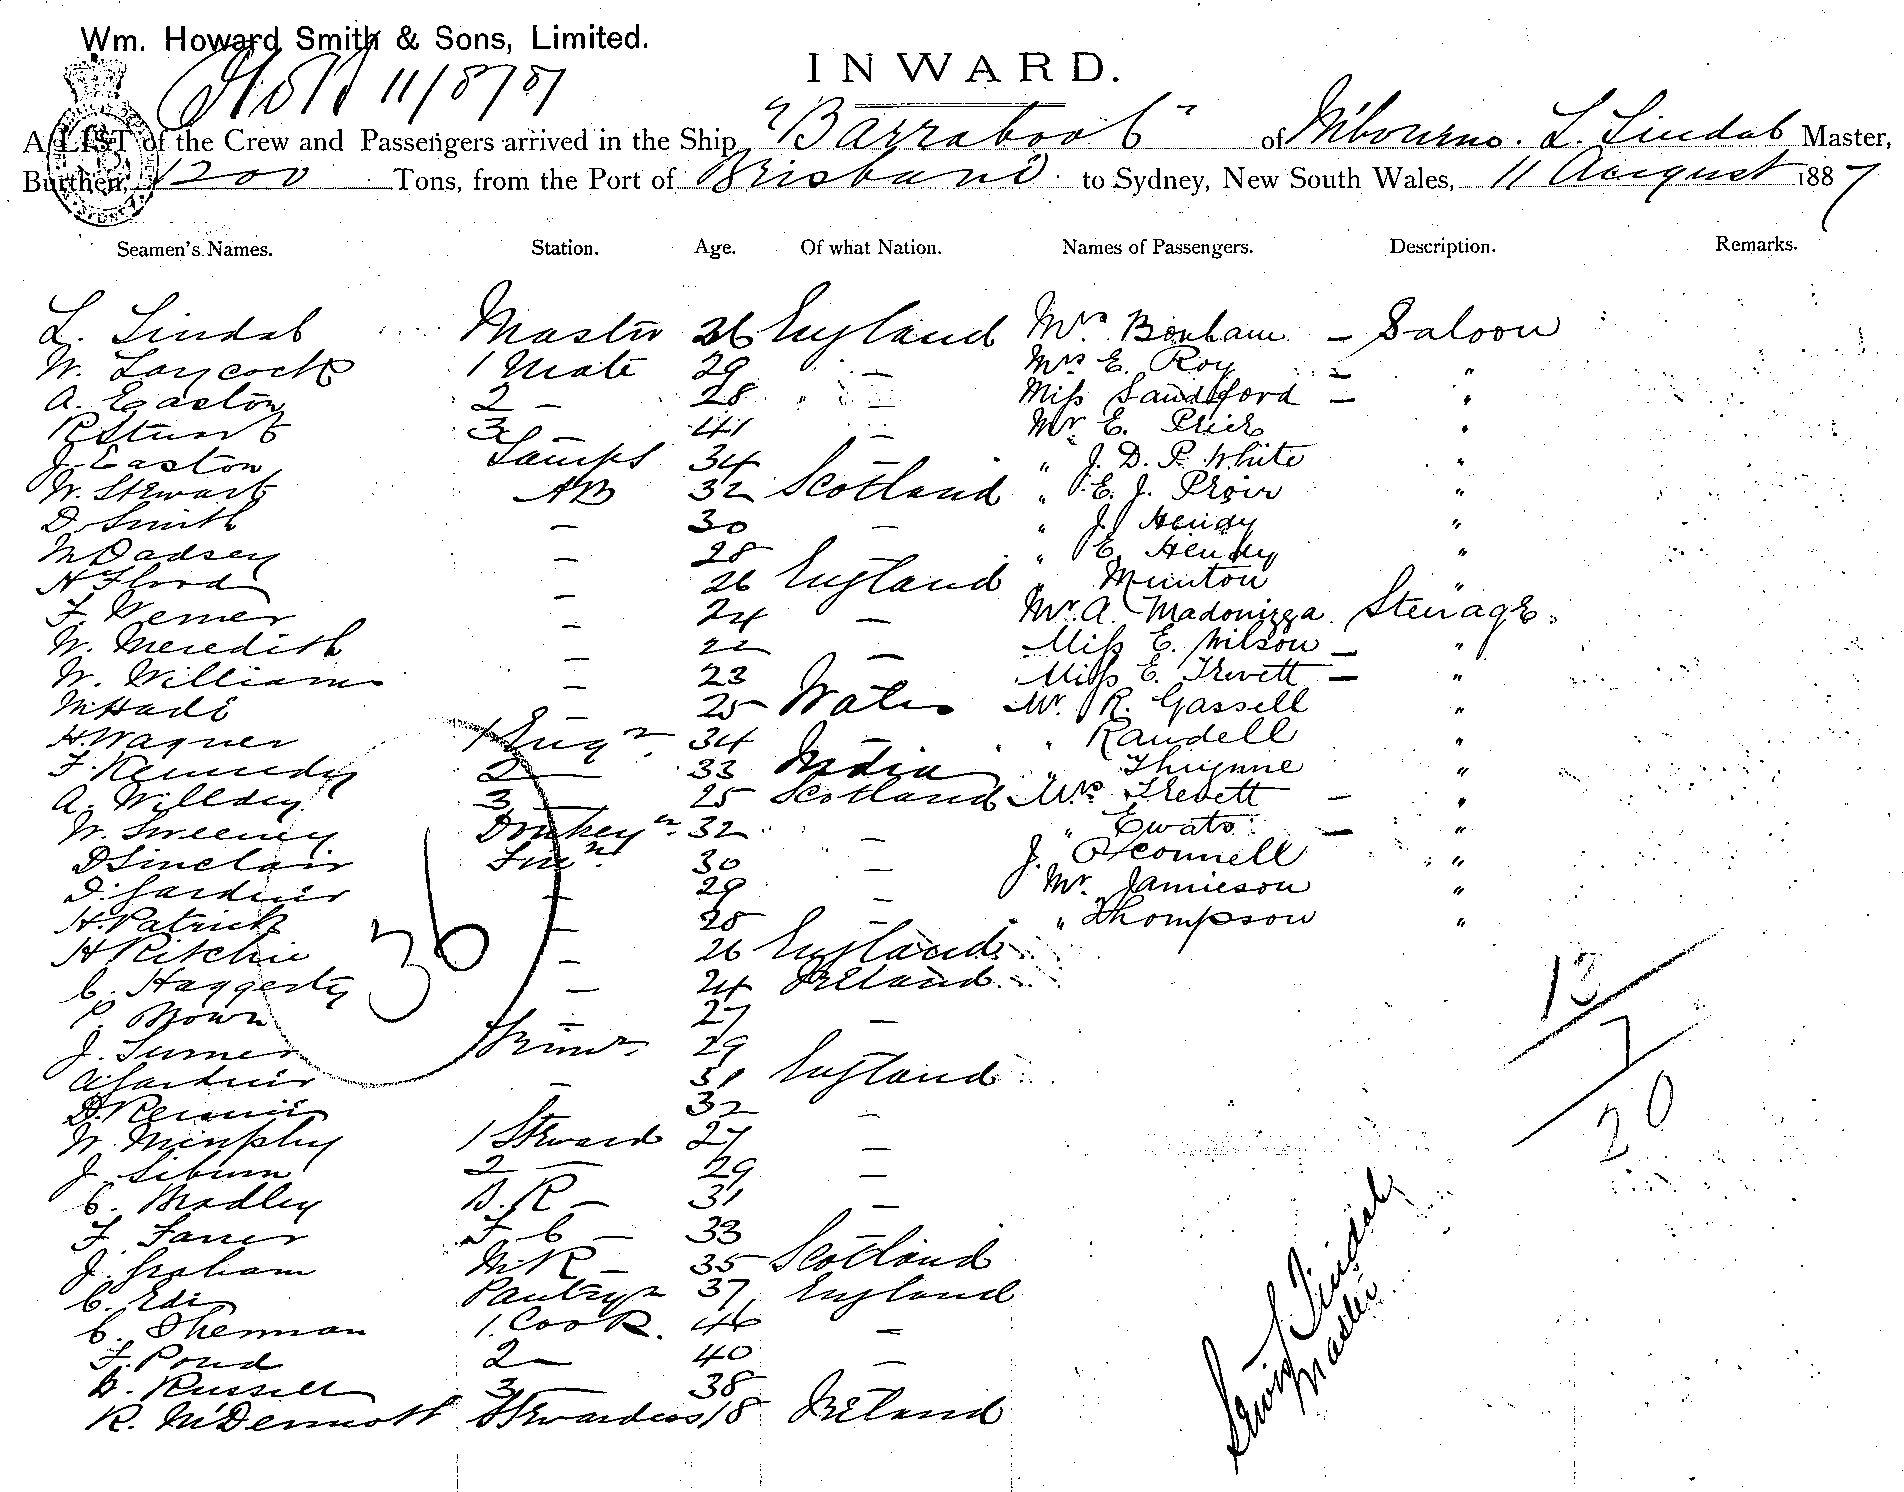 Wm. Howard Smith & Sons, Limited.
11/8/87
INWARD.
A LIST of the Crew and Passengers arrived in the Ship "Barrabool" of M'bourne. L. Lindal Master,
Burthen, 1200 Tons, from the Port of Brisbane to Sydney, New South Wales, 11 August 1887
Seamen's Names. Station. Age. Of what Nation. Names of Passengers. Description. Remarks.
L. Lindal Master 36 England Mrs Bonham – Saloon
W. Laycock 1 Mate 29 — Mrs E. Roy – "
A. Easton 2 — 28 — Miss Sandford – "
R Stuart 3 — 41 — Mr E. Price "
J. Easton Lamps 34 — " J. D. P. White "
W. Stewart AB 32 Scotland " E. J. Proir "
D. Smith — 30 — " J. Hendy "
M Dadsey — 28 — " E. Hendy "
H Flood — 26 England " Munton "
F. Werner — 24 — Mr. A. Madonizza Steerage.
W. Meredith — 22 — Miss E. Wilson – "
W. Williams — 23 Miss E. Trevett – "
M Hadi 25 Wales Mr. R. Gassell "
H. Wagner 1 Engr. 34 — " Randell "
F. Kennedy 2 — 33 India " Thynne "
A. Willdey 3 — 25 Scotland Mrs Trevett – "
W. Sweeney Donkeyn. 32 — " Ewats – "
D Sinclair Firen. 30 — J. O'Connell "
D. Gardner — 29 — Mr. Jamieson "
H. Patrick — 28 " Thompson "
H Ritchie — 26 England
C. Haggerty — 24 Ireland
P. Brown — 27 —
J. Turner Trimr. 29
A Gardner — 31 England
D. Rennie — 32 —
W. Murphy 1 Steward 27 —
J. Siburn 2 — 29 —
C. Bradley S. R — 31 —
F. Farrer F C — 33
J. Graham M R — 35 Scotland
C. Edi Pantryn 37 England
C. Sherman 1. Cook. 46 —
F. Pond 2 — 40 —
W. Russell 3 — 38
R. McDermott Stewardess 18 Ireland
36
13
7
20
Lewis Lindal
Master